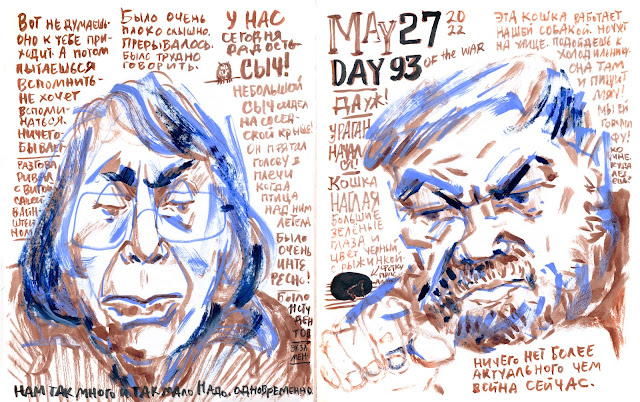 Вот не думаешь
оно к тебе при-
ходит. А потом
пытаешься
вспомнить-
не хочет
вспоми-
наться.
Ничего-
бывает
Было очень
плохо слышно.
Прерывалось.
Было трудно
говорить.
У НАС
сегодня
радость
СЫЧ!
небольшой
сыч сидел
на сосед-
ской крыше!
Он прятал
голову в
плечи
когда
птица
над ним
летела
Было
очень
инте
ресно!
Было
студ
ен
тов
экза
мен
НАМ ТАК МНОГО И ТАК МАЛО НАДО. ОДНОВРЕМЕННО.
MAY 27 2022
DAY 93 OF THE WAR
ДА УЖ!
УРАГАН
НАЧАЛ
СЯ
Кошка
наглая
большие
зелёные
глаза и
цвет черный
с рыжинкой
Эта кошка работает
нашей собакой. Ночует
на улице. Подойдешь к
холодильнику
она там
и пищит
мяу!
Ничего нет более
актуального чем
война сейчас.